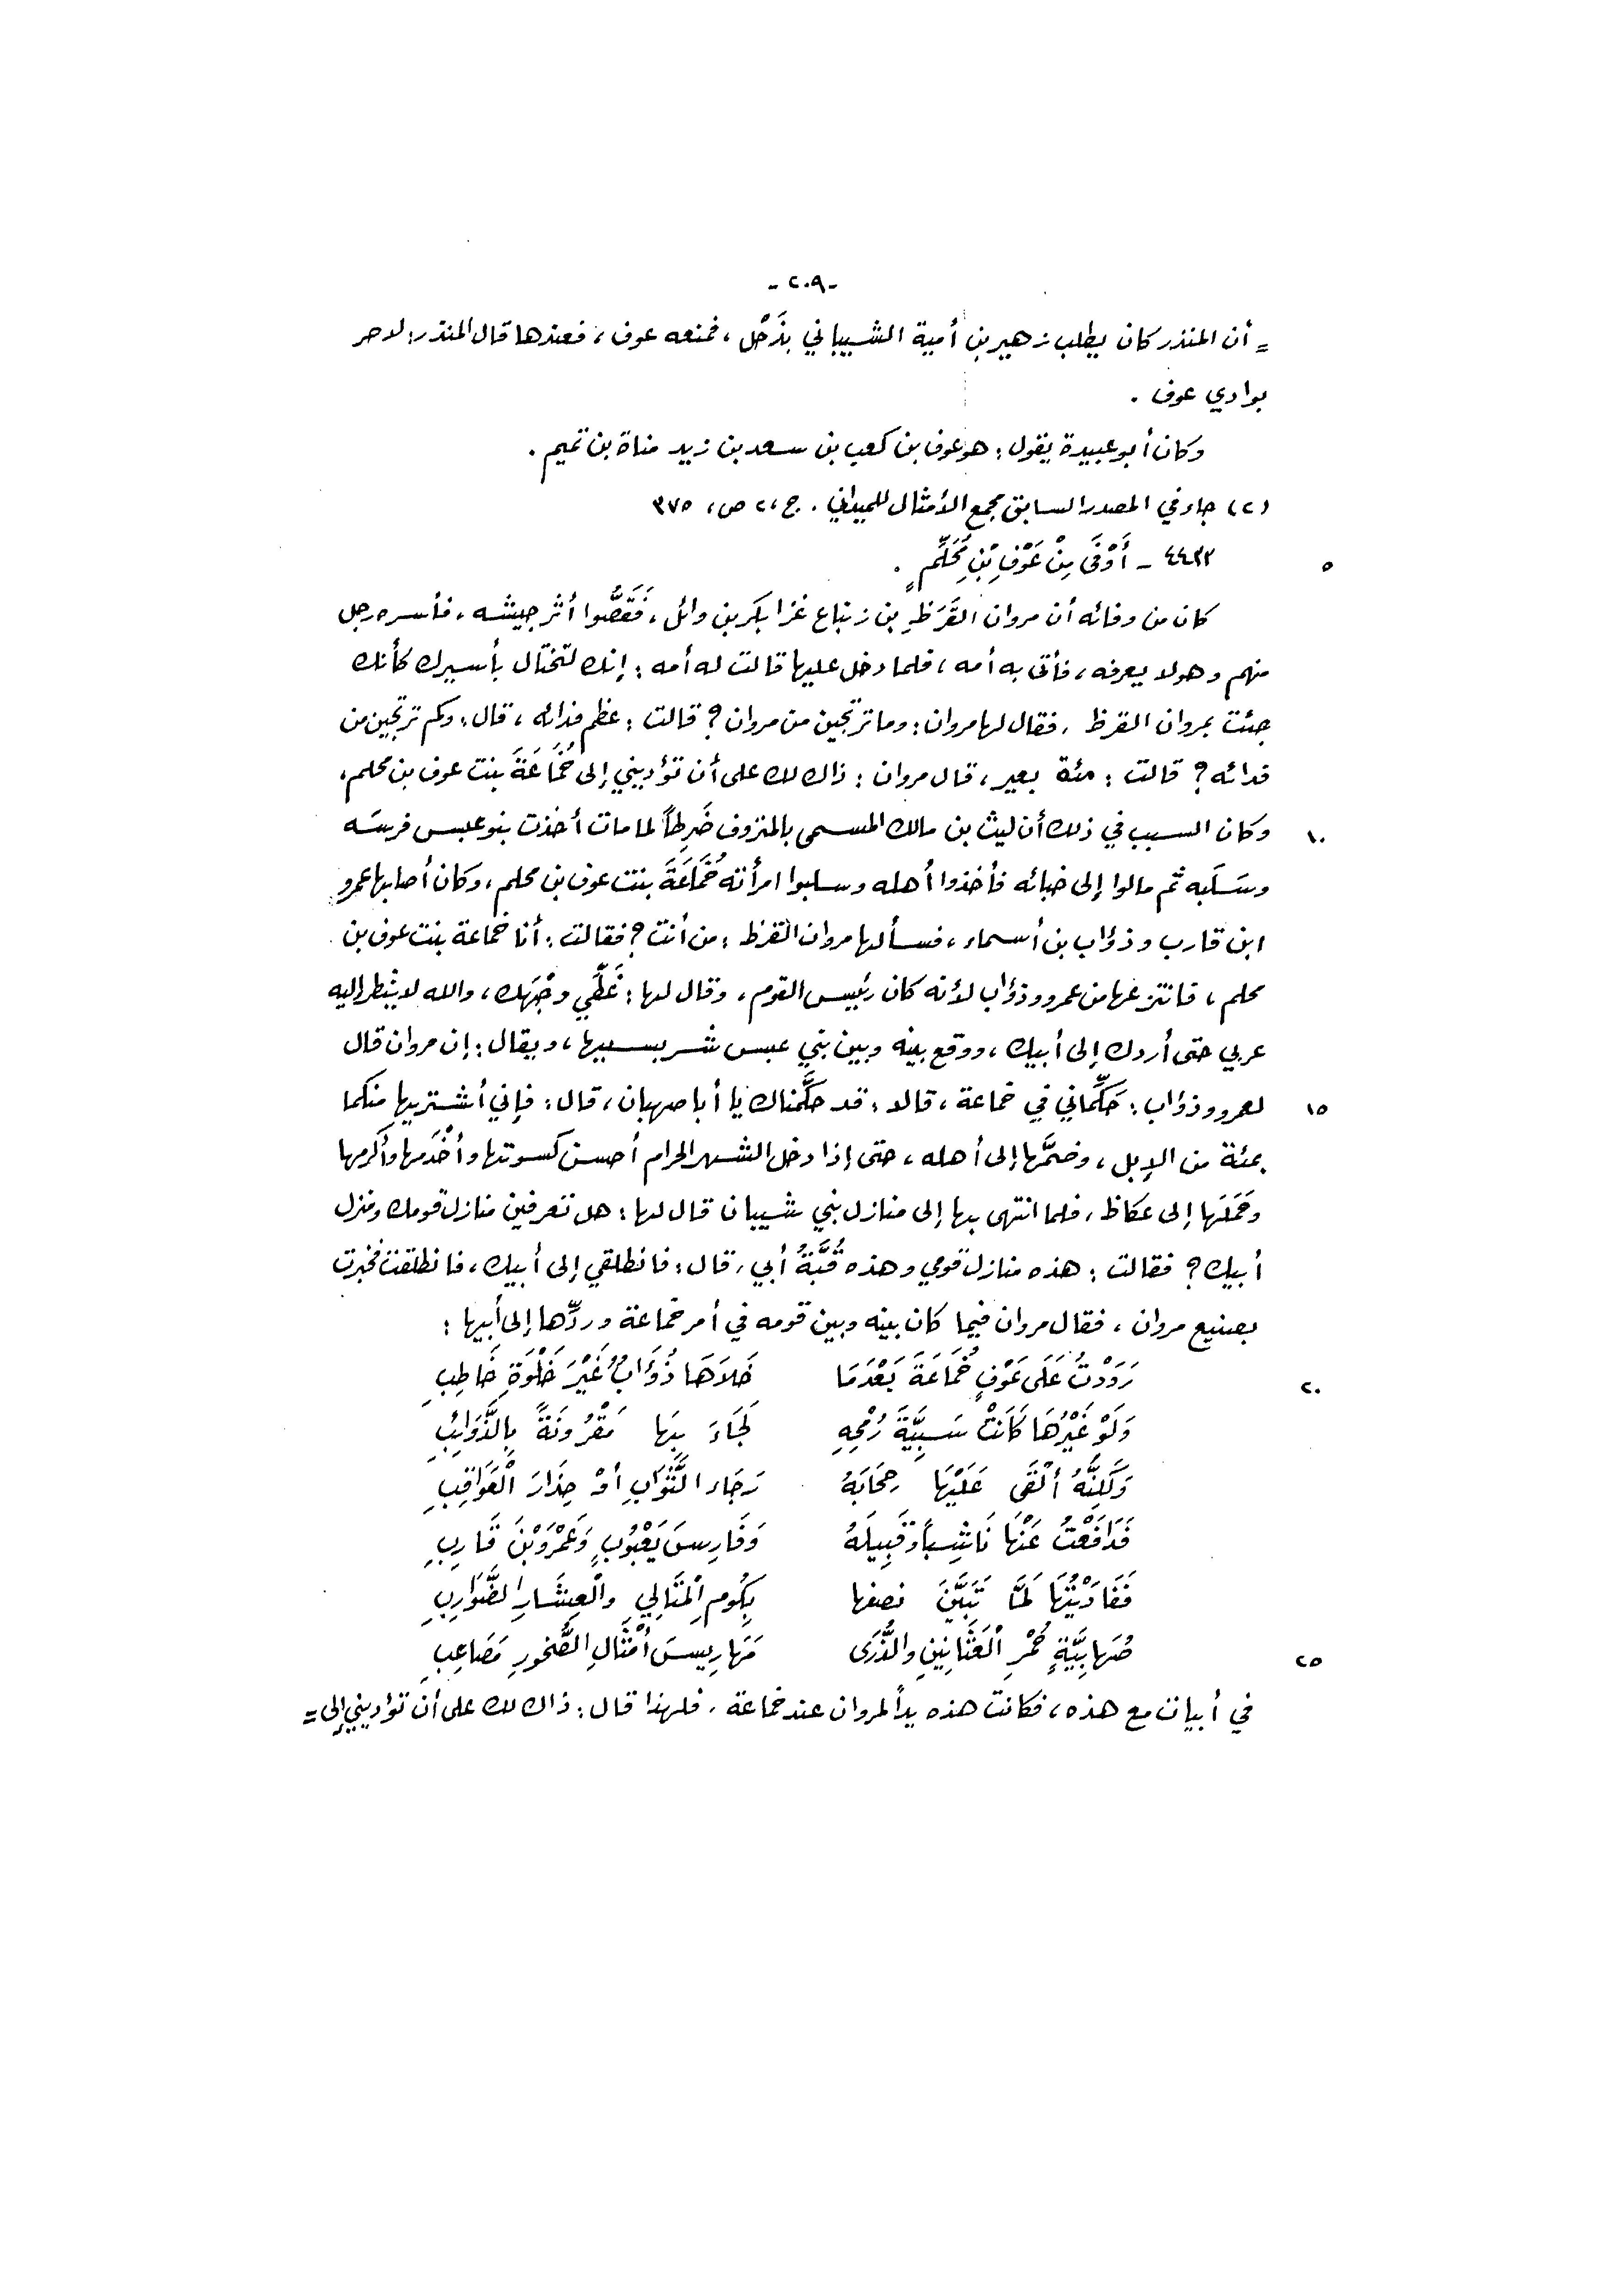 -٢٠٩-
= أن المنذر كان يطلب زهير بن أمية الشيباني بذَحْل ، فمنعه عوف ، فعندها قال المنذر : لاحر
بوادي عوف .
وكان أبو عبيدة يقول : هو عوف بن كعب بن سعد بن زيد مناة بن تميم .
(٢) جاء في المصدر السابق مجمع الأمثال للميداني . ج ، ٢ ، ص ، ٣٧٥
٥ ٤٤٣٣ - أَوْفَى مِنْ عَوْفِ بْنِ مُحَلِّمٍ .
كان من وفائه أن مروان القَرَظِ بن زنباع غزا بكر بن وائل ، فَقَصُّوا أثر جيشه ، فأسره رجل
منهم وهو لا يعرفه ، فأتى به أمه ، فلما دخل عليها قالت له أمه : إنك لتختال بأسيرك كأنك
جئت بمروان القرظ ، فقال لها مروان : وما ترتجين من مروان ؟ قالت : عظم فدائه ، قال : وكم ترتجين من
فدائه ؟ قالت : مئة بعير ، قال مروان : ذاك لك على أن تؤديني إلى خُمَاعَةَ بنت عوف بن محلم ،
١٠ وكان السبب في ذلك أن ليث بن مالك المسمى بالمنزوف ضَرِطاً لما مات أخذت بنو عبس فرسَه
وسَلَبه ثم مالوا إلى خبائه فأخذوا أهله وسلبوا امرأته خُمَاعَةَ بنت عوف بن محلم ، وكان أصابها عمرو
ابن قارب وذؤاب بن أسماء ، فسألها مروان القرظ : من أنت ؟ فقالت : أنا خماعة بنت عوف بن
محلم ، فانتزعها من عمرو وذؤاب لأنه كان رئيس القوم ، وقال لها : غَطِّي وجْهَك ، والله لا ينظر إليه
عربي حتى أردك إلى أبيك ، ووقع بينه وبين بني عبس شر بسببها ، ويقال : إن مروان قال
١٥ لعمرو وذؤاب : حَكِّماني في خماعة ، قالا : قد حكَّمناك يا أبا صهبان ، قال : فإني أشتريها منكما
بمئة من الإبل ، وضمَّها إلى أهله ، حتى إذا دخل الشهر الحرام أحسن كسوتها وأخْدَمها وأكرمها
وحَمَلَها إلى عكاظ ، فلما انتهى بها إلى منازل بني شيبان قال لها : هل تعرفين منازل قومك ومنزل
أبيك ؟ فقالت : هذه منازل قومي وهذه قُبَّةُ أبي ، قال : فانطلقي إلى أبيك ، فانطلقت فخبرت
بصنيع مروان ، فقال مروان فيما كان بينه وبين قومه في أمر خماعة وردِّها إلى أبيها :
٢٠ رَدَدْتُ عَلَى عَوْفٍ خُمَاعَةَ بَعْدَمَا خَلاَهَا ذُؤَابٌ غَيْرَ خَلْوَةِ خَاطِبِ
وَلَوْ غَيْرُهَا كَانَتْ سَبِيَّةَ رُمْحِهِ لَجَاءَ بِهَا مَقْرُونَةً بِالذَّوَائِبِ
وَلَكِنَّهُ أَلْقَى عَلَيْهَا حِجَابَهُ رَجَاءَ الثَّوَابِ أَوْ حِذَارَ الْعَوَاقِبِ
فَدَافَعْتُ عَنْهَا نَاشِباً وَقَبِيلَهُ وَفَارِسَ يَعْبُوبٍ وَعَمْرَوَ بْنَ قَارِبِ
فَفَادَيْتُهَا لَمَّا تَبَيَّنَ نصفها بِكُومِ الْمَتَالِي والْعِشَارِ الضَّوَارِبِ
٢٥ صُهَابِيَّةٍ حُمْرِ الْعَثَانِينِ والذُّرَى مَهَارِيسَ أَمْثَالِ الصُّخُورِ مَصَاعِبِ
في أبيات مع هذه ، فكانت هذه يداً لمروان عند خماعة ، فلهذا قال : ذاك لك على أن تؤديني إلى =